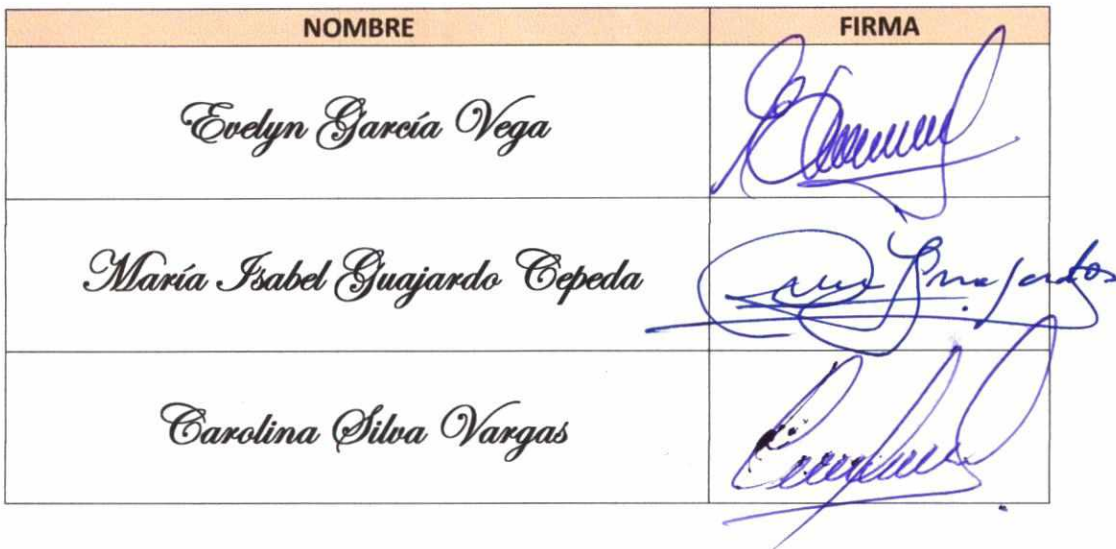 NOMBRE FIRMA
Evelyn García Vega
María Isabel Guajardo Cepeda
Carolina Silva Vargas